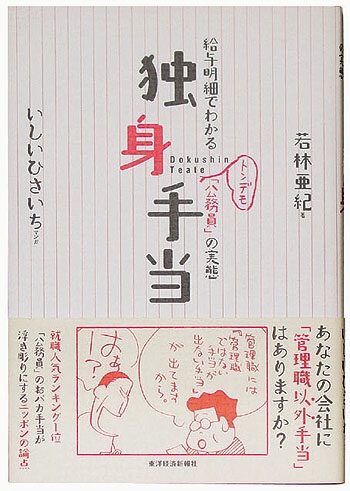 若林亜紀 著
給与明細でわかる
独身手当
Dokushin
Teate
トンデモ
「公務員」の実態
いしいひさいち マンガ
あなたの会社に
「管理職以外手当」
はありますか?
管理職には
『管理職
ではない
手当』が
出ない手当
が出てます
から。
はぁ!?
就職人気ランキング一位
「公務員」の超バカ手当が
浮き彫りにするニッポンの論点
東洋経済新報社